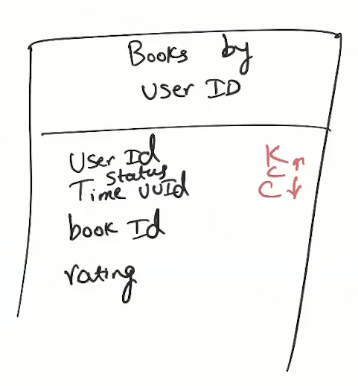 Books by
User ID
User Id K
status C ↑
Time UUId C ↓
book Id
rating